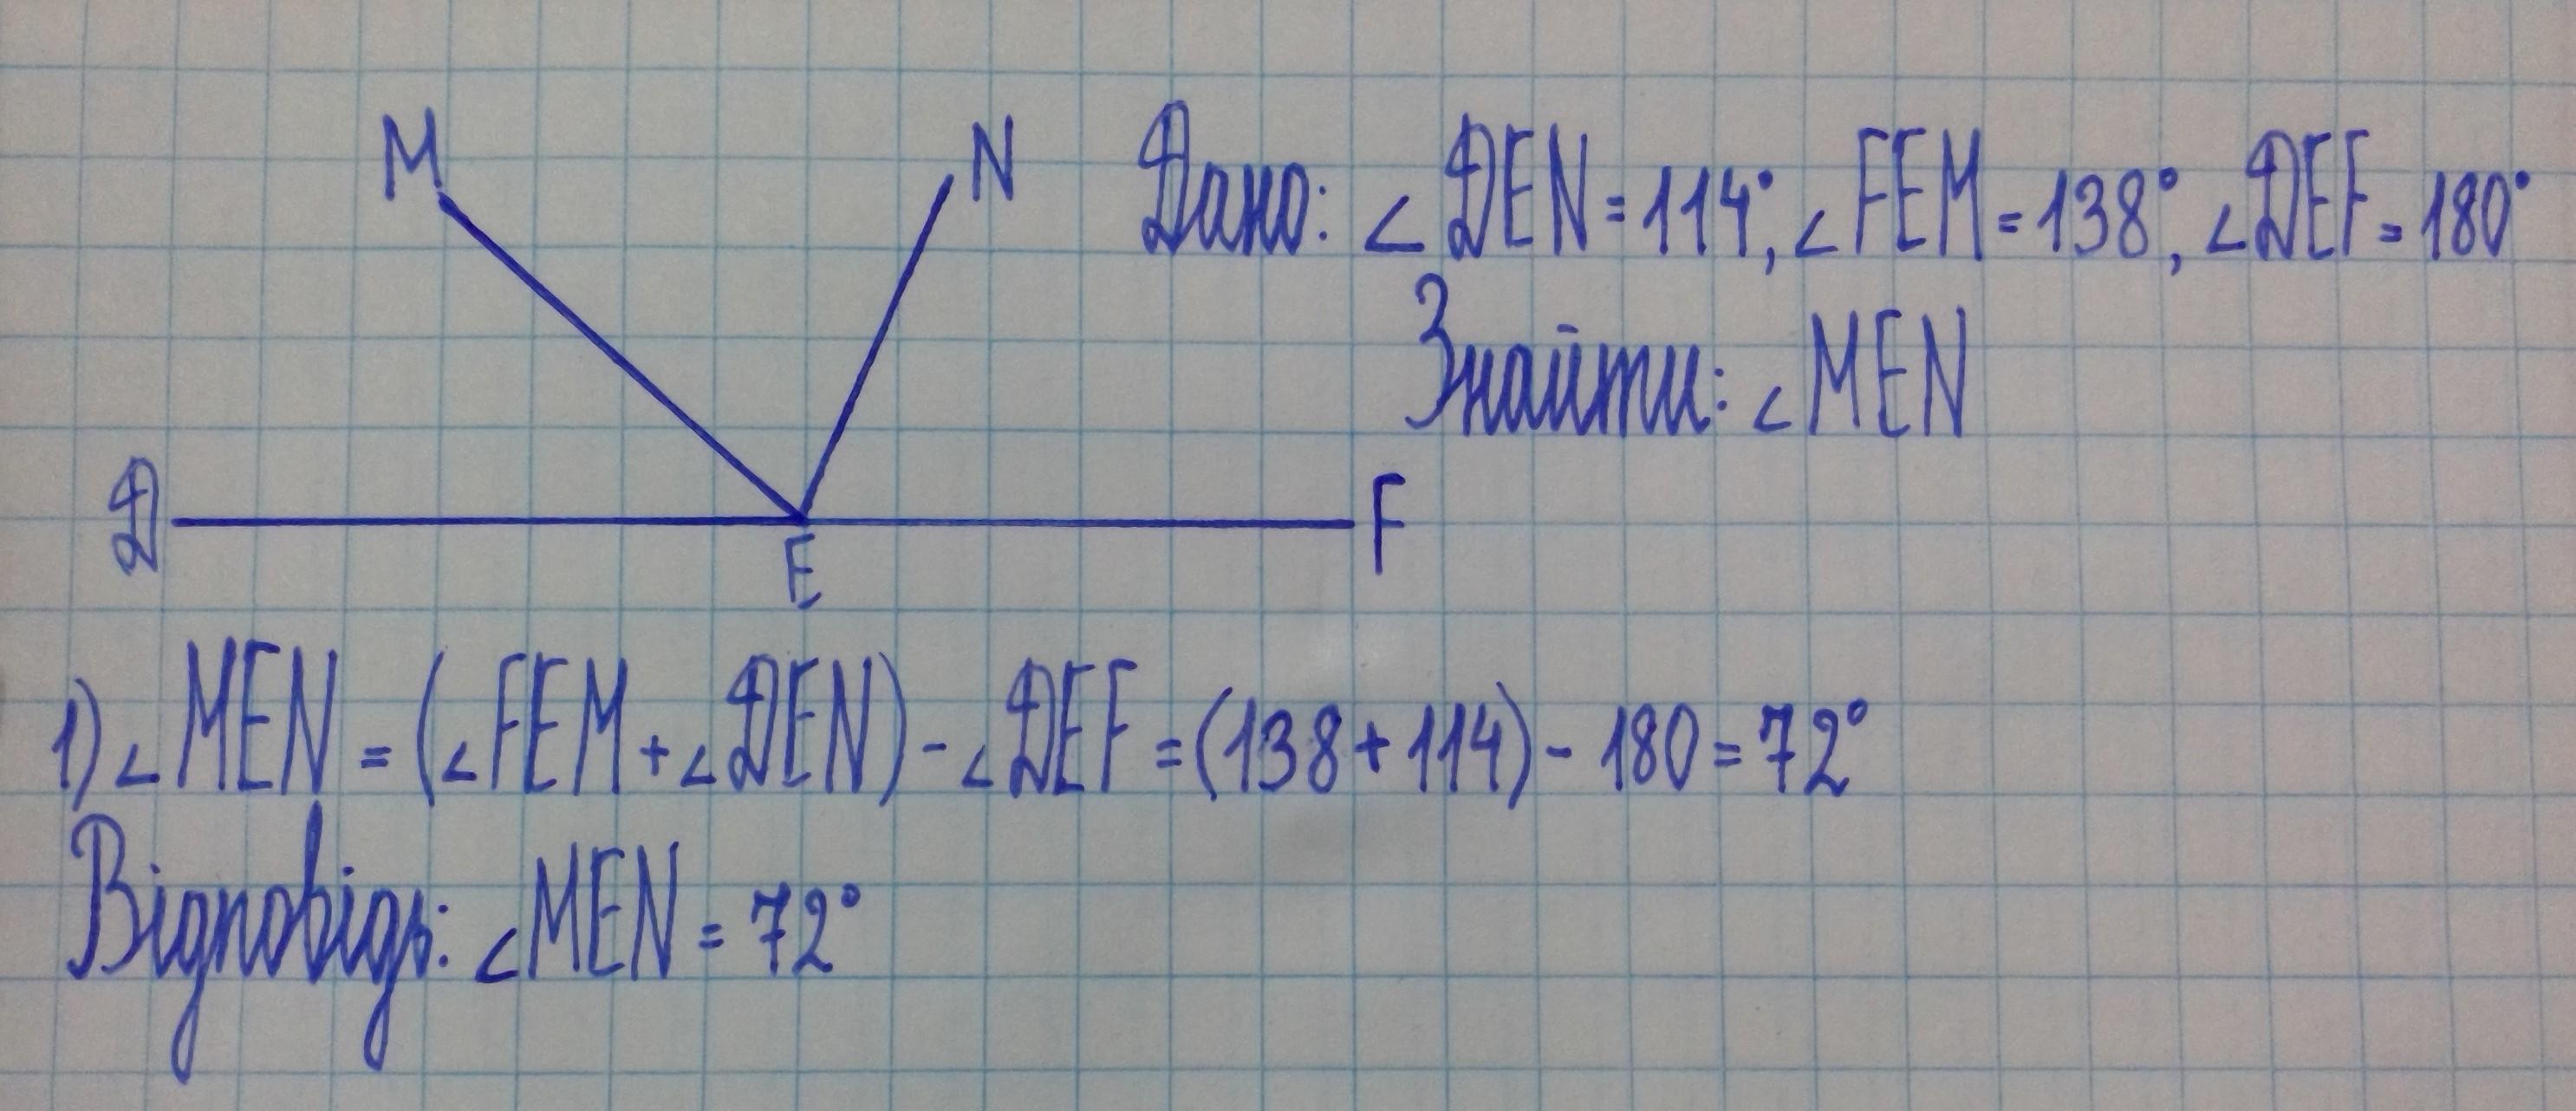 M
N
Дано: ∠DEN = 114°, ∠FEM = 138°, ∠DEF = 180°
Знайти: ∠MEN
D
F
E
1) ∠MEN = (∠FEM + ∠DEN) - ∠DEF = (138 + 114) - 180 = 72°
Відповідь: ∠MEN = 72°